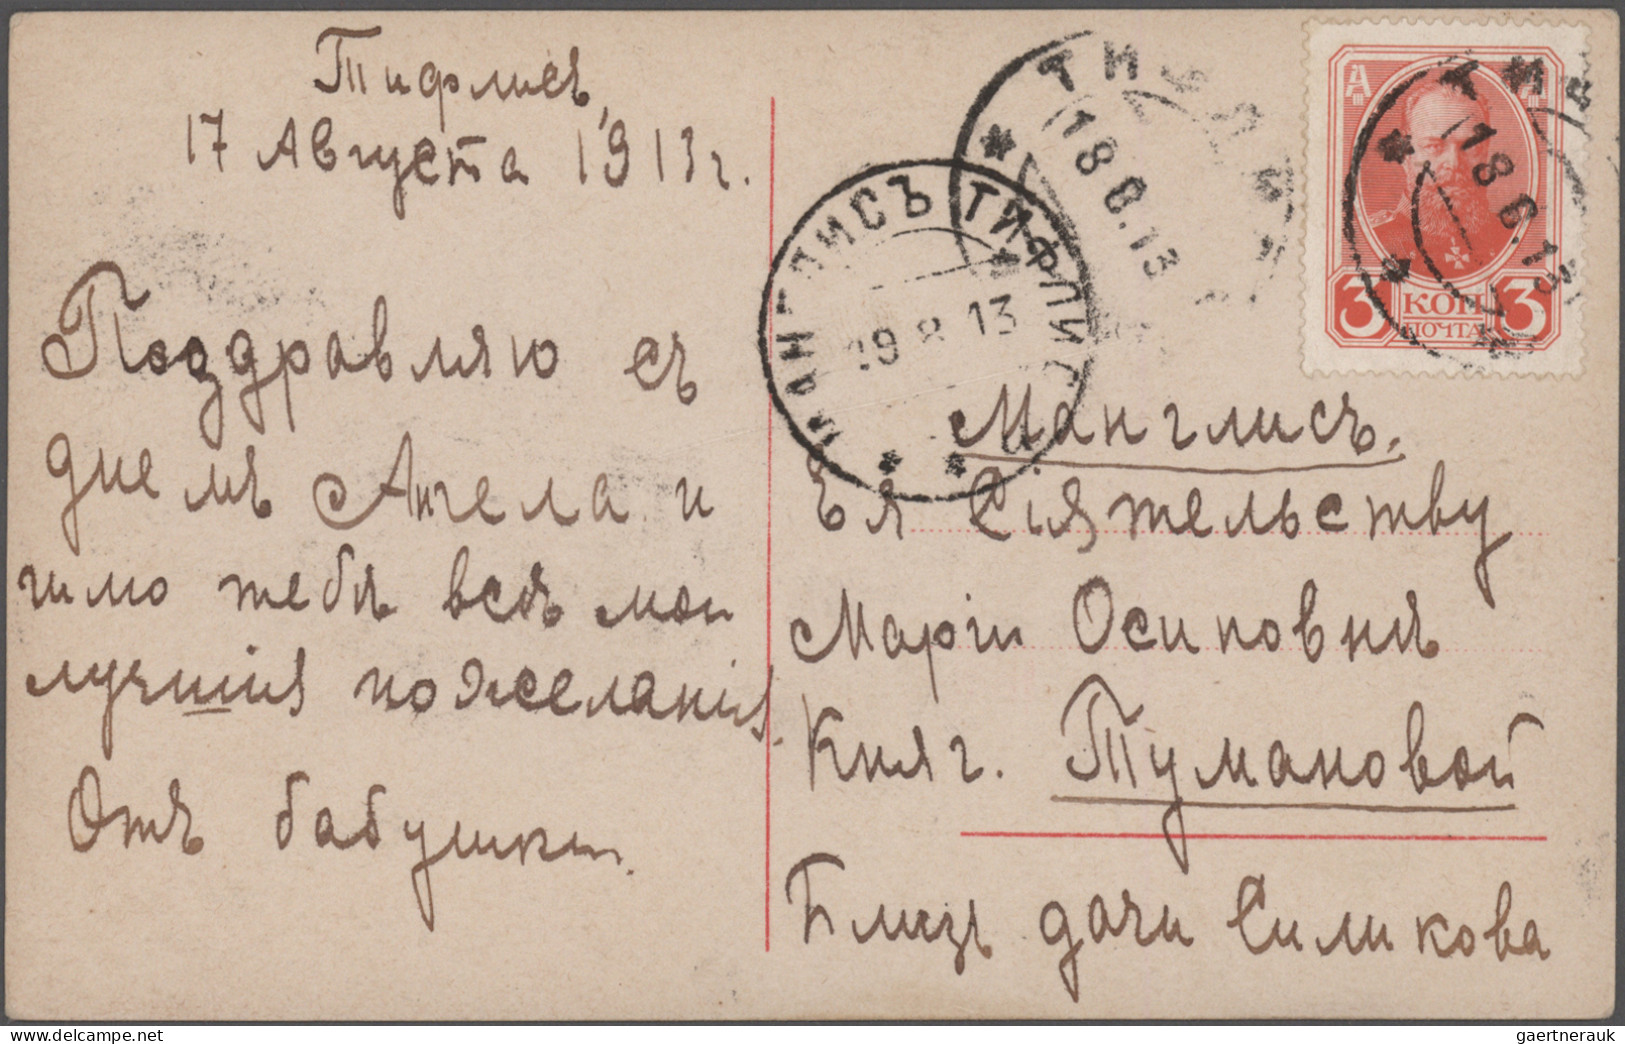 Тифлисъ,
17 Августа 1913 г.
Поздравляю съ
днемъ Ангела и
шлю тебѣ всѣ мои
лучшія пожеланія.
Отъ бабушки.
ТИФЛИСЪ
18 8.13
ТИФ
18 8.13
МАНГЛИСЪ ТИФЛИС. Г.
19 8 13
3 КОП 3
ПОЧТА
Манглисъ.
Ея Сіятельству
Маріи Осиповнѣ
Княг. Тумановой
Близъ дачи Силикова
gaertnerauk @ www.delcampe.net